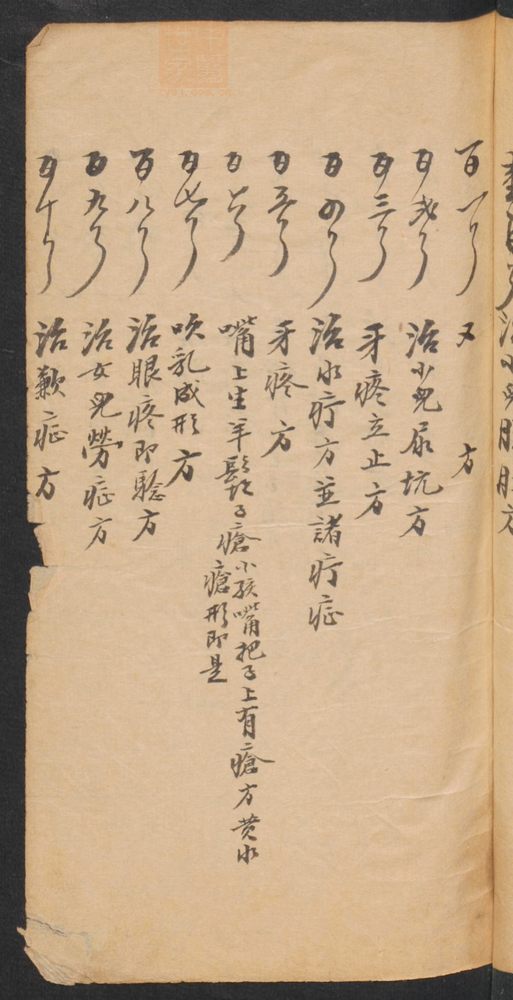 百一 又方
百弍 治小児尿坑方
百三 牙疼立止方
百四 治水疔方並諸疔症
百五 牙疼方
百六 嘴上生羊鬍子瘡小孩嘴把子上有瘡方黄水
瘡形即是
百七 吹乳成形方
百八 治眼疼即騐方
百九 治女児勞症方
百十 治歎症方